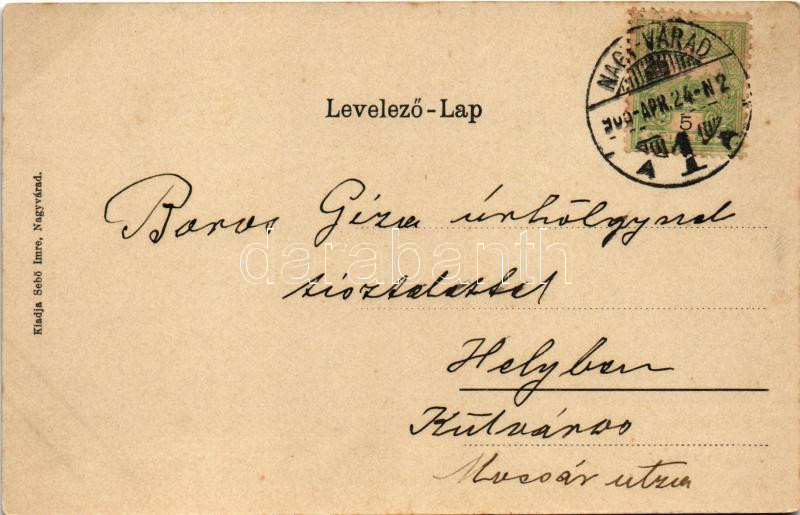 NAGY-VÁRAD
APR. 24-N 2
5
1
A
Levelező-Lap
Kiadja Sebő Imre, Nagyvárad.
Boros Géza úrhölgynek
tisztelettel
darabanth
Helyben
Külváros
utza